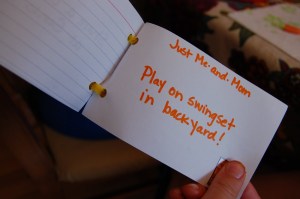 Just Me-and-Mom
Play on swingset
in backyard!